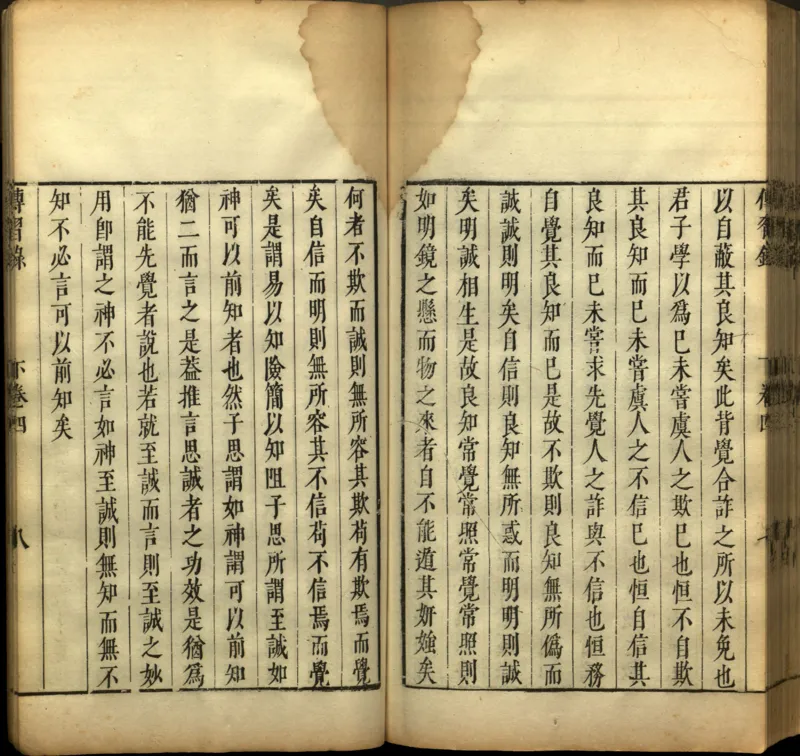 以自蔽其良知矣此背覺合詐之所以未免也
君子學以爲巳未嘗虞人之欺巳也恒不自欺
其良知而巳未嘗虞人之不信巳也恒自信其
良知而巳未嘗求先覺人之詐與不信也恒務
自覺其良知而巳是故不欺則良知無所僞而
誠誠則明矣自信則良知無所惑而明明則誠
矣明誠相生是故良知常覺常照常覺常照則
如明鏡之懸而物之來者自不能遁其妍媸矣
何者不欺而誠則無所容其欺苟有欺焉而覺
矣自信而明則無所容其不信苟不信焉而覺
矣是謂易以知險簡以知阻子思所謂至誠如
神可以前知者也然子思謂如神謂可以前知
猶二而言之是蓋推言思誠者之功效是猶爲
不能先覺者說也若就至誠而言則至誠之妙
用卽謂之神不必言如神至誠則無知而無不
知不必言可以前知矣
傳習錄 下卷四 八